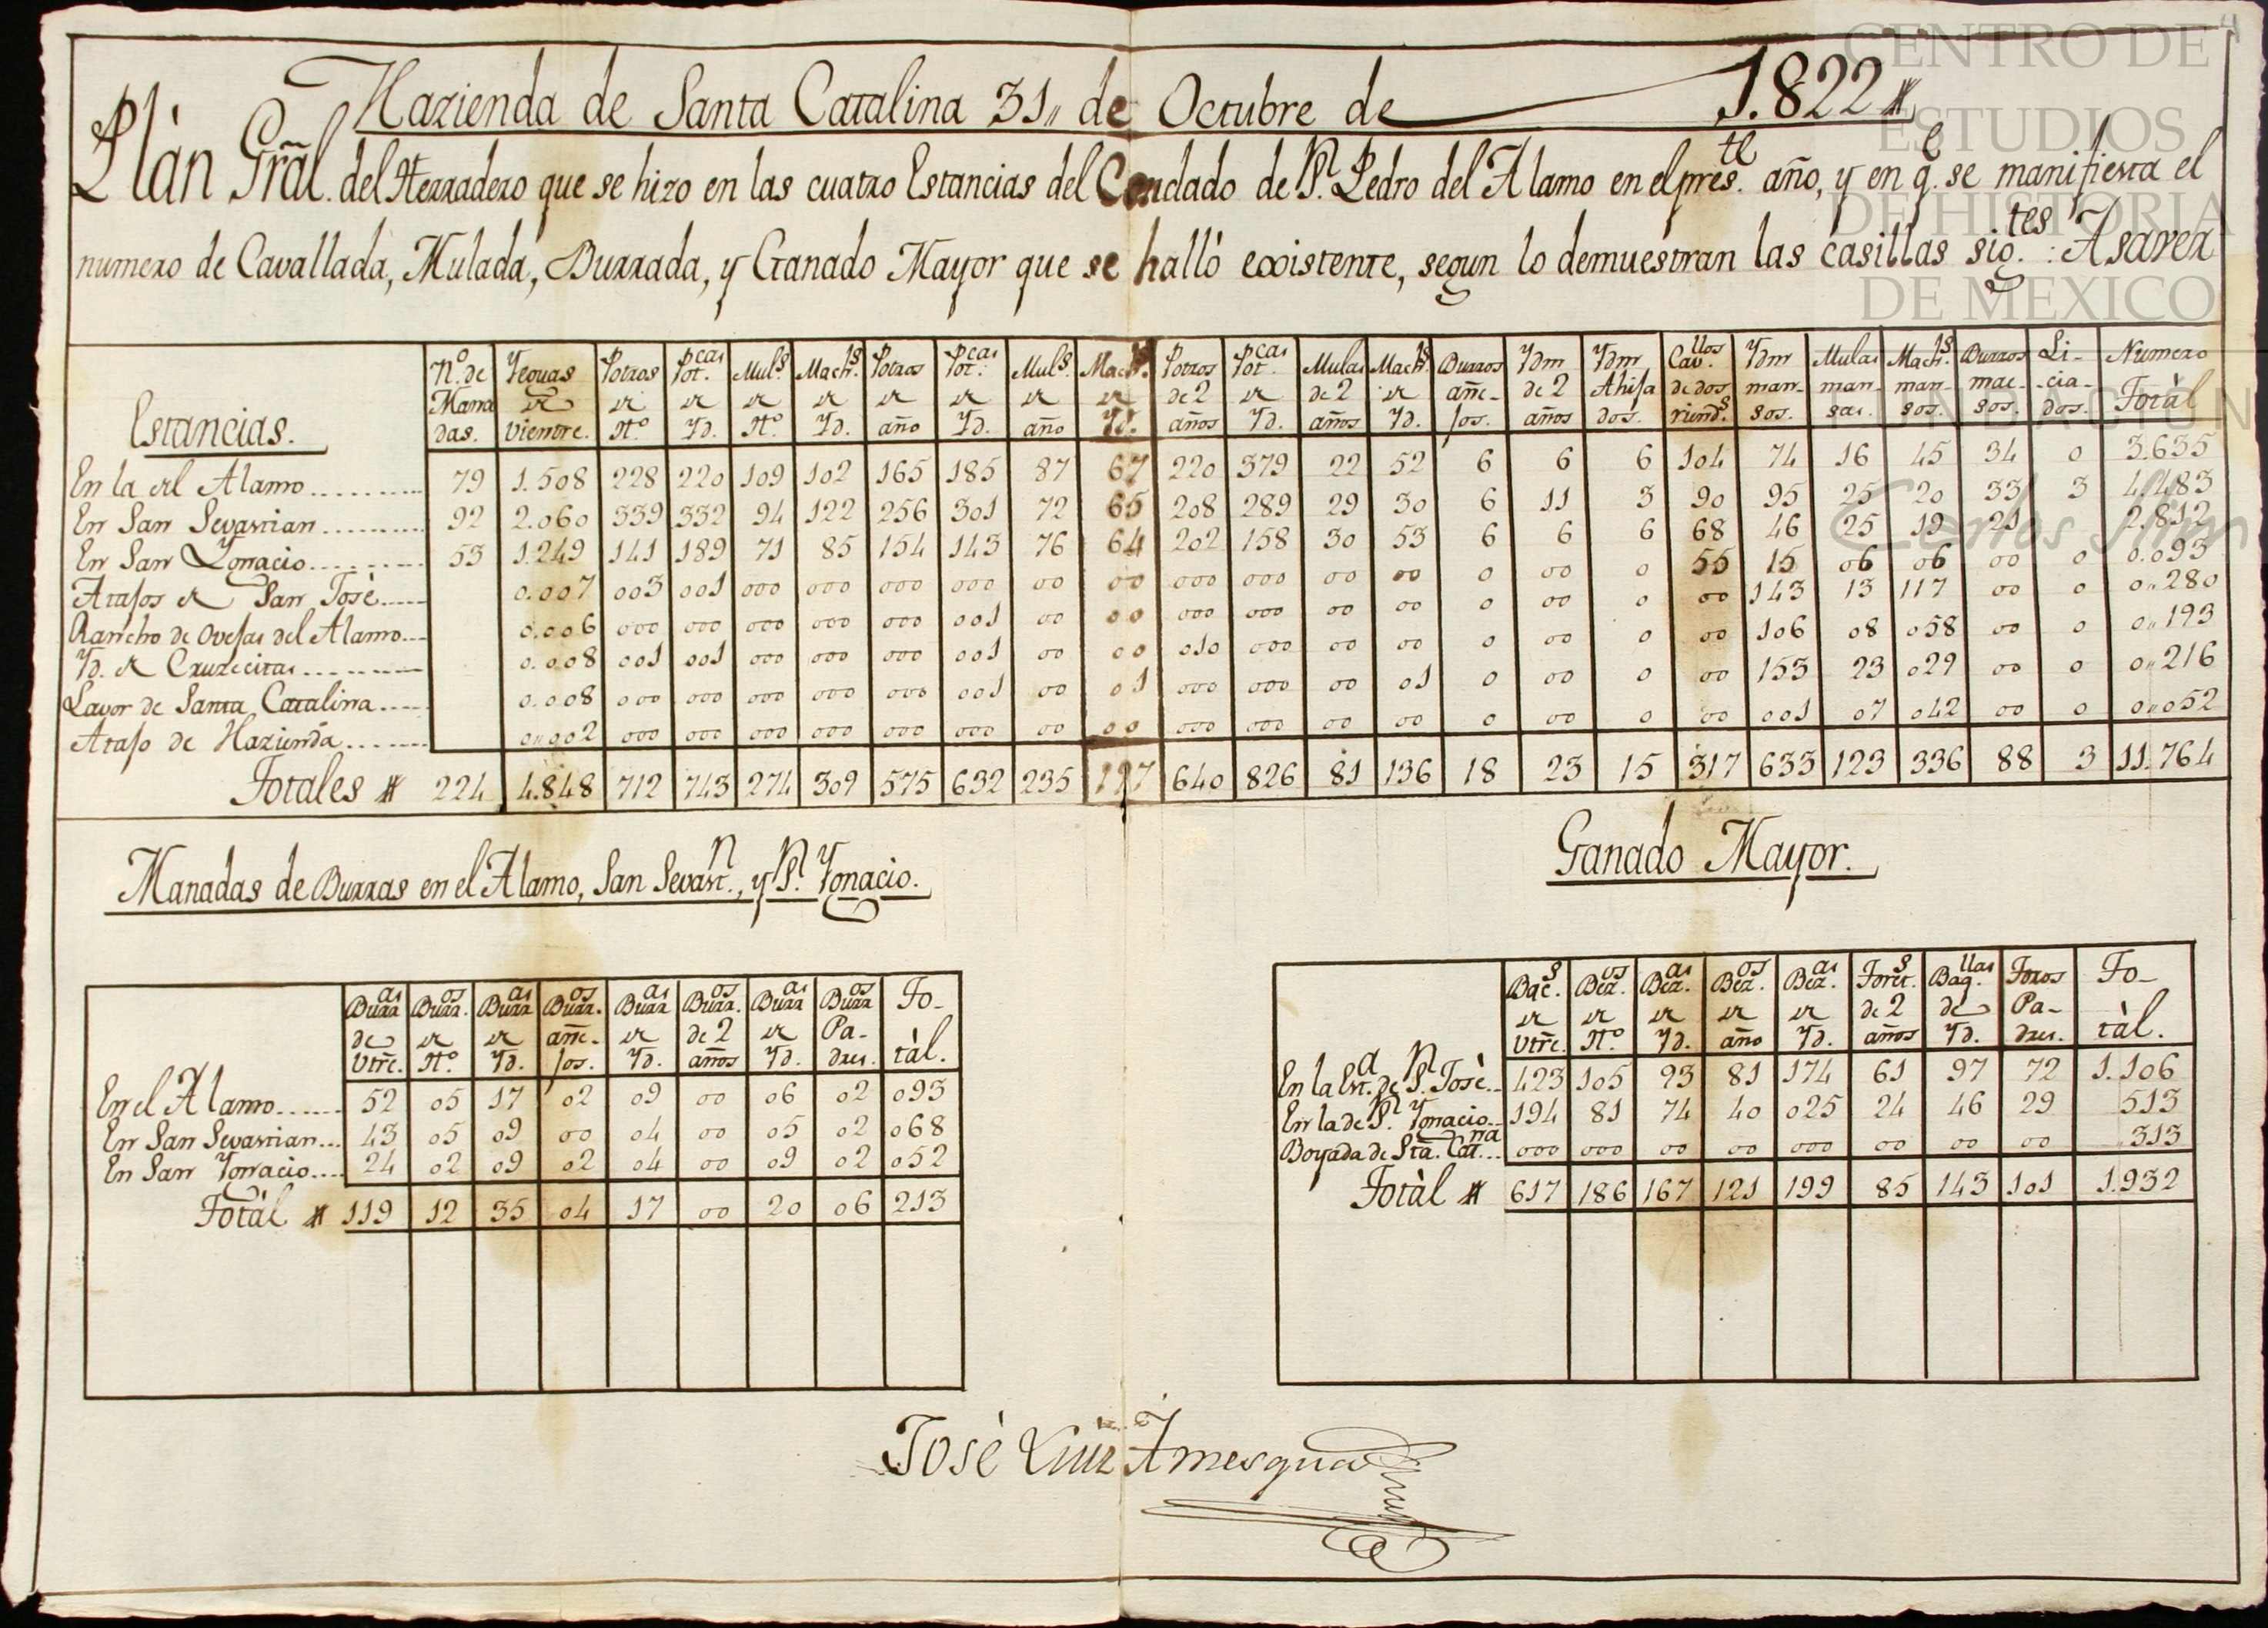 Hazienda de Santa Catalina 31,, de Octubre de 1.822
Plàn Grāl. del Herradero que se hizo en las cuatro Estancias del Condado de Sn. Pedro del Alamo en el preste. año, y en qe. se manifiesta el
numero de Cavallada, Mulada, Burrada, y Ganado Mayor que se hallò existente, segun lo demuestran las casillas sigtes.: Asaver
Estancias. No. de Manadas. Yeguas de vientre. Potros de Ho. Potcas. de Yd. Muls. de Ho. Machs. de Yd. Potros de año Potcas. de Yd. Muls. de año Machs. de Yd. Potros de 2 años Potcas. de Yd. Mulas de 2 años Machs. de Yd. Burros añejos. Ydm de 2 años Ydm Ahijados. Cavllos. de dos riends. Ydm mansos. Mulas mansas. Machs. mansos. Burros mansos. Liciados. Numero Totàl
En la del Alamo 79 1.508 228 220 109 102 165 185 87 67 220 379 22 52 6 6 6 104 74 16 45 34 0 3.635
En San Sevastian 92 2.060 339 332 94 122 256 301 72 65 208 289 29 30 6 11 3 90 95 25 20 33 3 4.483
En San Ygnacio 53 1.249 141 189 71 85 154 143 76 64 202 158 30 53 6 6 6 68 46 25 19 21 2.812
Atajos de San Josè 0.007 003 001 000 000 000 000 00 00 000 000 00 00 0 00 0 55 15 06 06 00 0 0.093
Rancho de Ovejas del Alamo 0.006 000 000 000 000 000 001 00 00 000 000 00 00 0 00 0 00 143 13 117 00 0 0,,280
Yd. de Cruzecitas 0.008 001 001 000 000 000 001 00 00 010 000 00 00 0 00 0 00 106 08 058 00 0 0,,193
Lavor de Santa Catalina 0.008 000 000 000 000 000 001 00 01 000 000 00 01 0 00 0 00 153 23 029 00 0 0,,216
Atajo de Hazienda 0,,002 000 000 000 000 000 000 00 00 000 000 00 00 0 00 0 00 001 07 042 00 0 0,,052
Totales 224 4.848 712 743 274 309 575 632 235 197 640 826 81 136 18 23 15 317 633 123 336 88 3 11.764
Manadas de Burras en el Alamo, San Sevastn., y Sn. Ygnacio.
Burras de Vtre. Burros. de Ho. Burras de Yd. Burros. añejos. Burras de Yd. Burros. de 2 años Burras de Yd. Burros Padres. Totàl.
En el Alamo 52 05 17 02 09 00 06 02 093
En San Sevastian 43 05 09 00 04 00 05 02 068
En San Ygnacio 24 02 09 02 04 00 09 02 052
Totàl 119 12 35 04 17 00 20 06 213
Ganado Mayor.
Bacs. de Vtre. Bezos. de Ho. Bezas. de Yd. Bezos. de año Bezas. de Yd. Torets. de 2 años Baqllas. de Yd. Toros Padres. Totàl.
En la Esta. de Sn. Josè 423 105 93 81 174 61 97 72 1.106
En la de Sn. Ygnacio 194 81 74 40 025 24 46 29 513
Boyada de Sta. Catna. 000 000 00 00 000 00 00 00 313
Totàl 617 186 167 121 199 85 143 101 1.932
Josè Luiz Amesquita
CENTRO DE
ESTUDIOS
DE HISTORIA
DE MEXICO
FUNDACIÓN
Carlos Slim